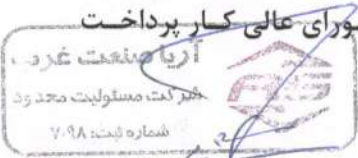 ورای عالی کار پرداخت
آریا صنعت غرب
شرکت مسئولیت محدود
شماره ثبت: ۷۰۹۸